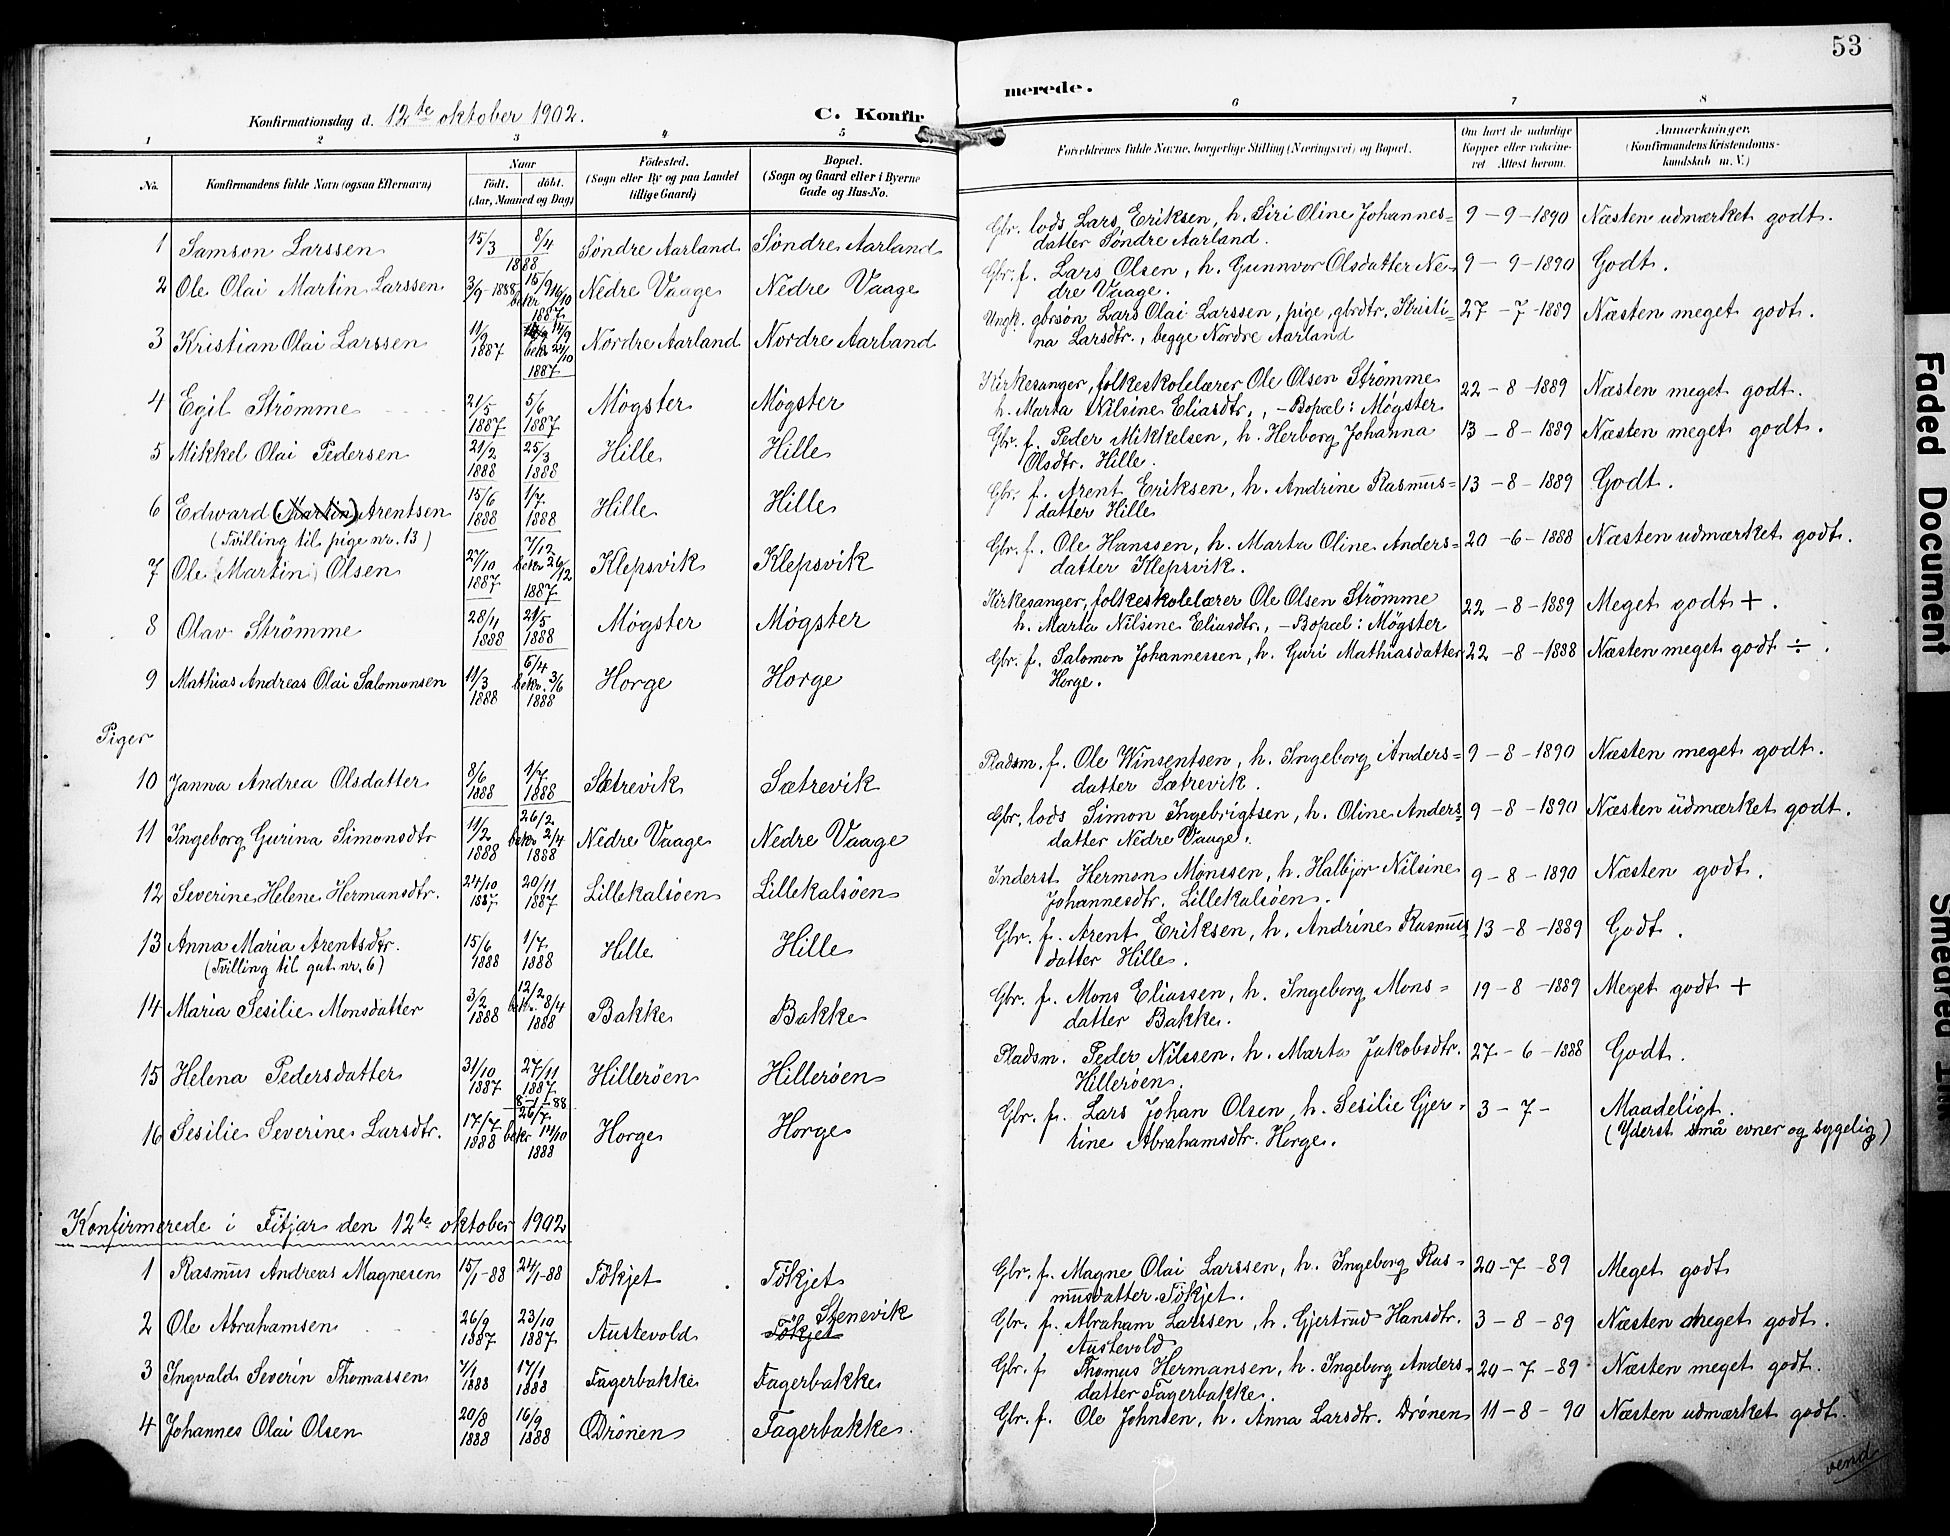 53
Konfirmationsdag d. 12te oktober 1902.
C. Konfir
merede.
1 2 3 4 5 6 7 8
No. Konfirmandens fulde Navn (ogsaa Efternavn)
Naar
født. døbt.
(Aar, Maaned og Dag)
Fødested.
(Sogn eller By og paa Landet
tillige Gaard)
Bopæl.
(Sogn og Gaard eller i Byerne
Gade og Hus-No.
Forældrenes fulde Navne, borgerlige Stilling (Næringsvei) og Bopæl.
Om havt de naturlige
Kopper eller vakcine-
ret Attest herom.
Anmærkninger.
(Konfirmandens Kristendoms-
kundskab m. V.)
1 Samson Larssen 15/3 8/4 1888 Søndre Aarland Søndre Aarland Gbr. lods Lars Eriksen, h. Siri Oline Johannes= 9-9-1890 Næsten udmærket godt.
datter Søndre Aarland.
2 Ole Olai Martin Larssen 3/9-1888 15/9 bekr 16/10 Nedre Vaage Nedre Vaage Gbr. f. Lars Olsen, h. Gunnvor Olsdatter Ne= 9-9-1890 Godt.
dre Vaage.
3 Kristian Olai Larssen 11/9 1887 bekr 1887 Nordre Aarland Nordre Aarland Ungk. gbrsøn Lars Olai Larssen, pige, gbrdtr. Kristi= 27-7-1889 Næsten meget godt.
na Larsdtr., begge Nordre Aarland
4 Egil Strömme 21/5 1887 5/6 1887 Møgster Møgster Kirkesanger, folkeskolelærer Ole Olsen Strömme 22-8-1889 Næsten meget godt.
h. Marta Nilsine Eliasdtr., -Bopæl: Møgster
5 Mikkel Olai Pedersen 21/2 1888 25/3 1888 Hille Hille Gbr. f. Peder Mikkelsen, h. Herborg Johanna 13-8-1889 Næsten meget godt.
Olsdtr. Hille.
6 Edward (Martin) Arentsen 15/6 1888 1/7 1888 Hille Hille Gbr. f. Arent Eriksen, h. Andrine Rasmus= 13-8-1889 Godt.
(Tvilling til pige nr. 13) datter Hille
7 Ole (Martin) Olsen 27/10 1887 7/12 bekr 26/12 1887 Klepsvik Klepsvik Gbr. f. Ole Hanssen, h. Marta Oline Anders= 20-6-1888 Næsten udmærket godt.
datter Klepsvik.
8 Olav Strömme 28/4 1888 21/5 1888 Møgster Møgster Kirkesanger, folkeskolelærer Ole Olsen Strömme 22-8-1889 Meget godt +.
h. Marta Nilsine Eliasdtr., -Bopæl: Møgster
9 Mathias Andreas Olai Salomonsen 11/3 1888 6/4 bekr. 3/6 1888 Horge Horge Gbr. f. Salomon Johannessen, h. Guri Mathiasdatter 22-8-1888 Næsten meget godt ÷.
Horge.
Piger
10 Janna Andrea Olsdatter 8/6 1888 1/7 1888 Sætrevik Sætrevik Pladsm. f. Ole Winsentsen, h. Ingeborg Anders= 9-8-1890 Næsten meget godt.
datter Sætrevik.
11 Ingeborg Gurina Simonsdtr 11/2 1888 26/2 bekr 2/4 1888 Nedre Vaage Nedre Vaage Gbr. lods Simon Ingebrigtsen, h. Oline Anders= 9-8-1890 Næsten udmærket godt.
datter Nedre Vaage.
12 Severine Helene Hermansdtr. 24/10 1887 20/11 1887 Lillekalsöen Lillekalsöen Inderst Hermon Monssen, h. Halbjor Nilsine 9-8-1890 Næsten godt.
Johannesdtr. Lillekalsöen.
13 Anna Maria Arentsdtr. 15/6 1888 1/7 1888 Hille Hille Gbr. f. Arent Eriksen, h. Andrine Rasmus 13-8-1889 Godt.
(Tvilling til gut nr. 6) datter Hille.
14 Maria Sesilie Monsdatter 3/2 1888 12/2 bekr. 8/4 1888 Bakke Bakke Gbr. f. Mons Eliassen, h. Ingeborg Mons= 19-8-1889 Meget godt +
datter Bakke.
15 Helena Pedersdatter 31/10 1887 27/11 1887 8-1-88 Hilleröen Hilleröen Pladsm. Peder Nilssen, h. Marta Jakobsdtr. 27-6-1888 Godt.
Hilleröen.
16 Sesilie Severine Larsdtr. 17/7 1888 26/7 bekr 14/10 1888 Horge Horge Gbr. f. Lars Johan Olsen, h. Sesilie Gjer- 3-7- Maadeligt.
tine Abrahamsdtr. Horge. (Yderst små evner og sygelig)
Konfirmerede i Fitjar den 12te oktober 1902
1 Rasmus Andreas Magnesen 15/1-88 24/1-88 Tökjet Tökjet Gbr. f. Magne Olai Larssen, h. Ingeborg Ras- 20-7-89 Meget godt
musdatter Tökjet.
2 Ole Abrahamsen 26/9 1887 23/10 1887 Austevold Stenevik Tökjet Gbr. f. Abraham Larssen, h. Gjertrud Hansdtr. 3-8-89 Næsten meget godt.
Austevold
3 Ingvald Severin Thomassen 7/1 1888 17/1 1888 Fagerbakke Fagerbakke Gbr. f Thomas Hermansen, h. Ingeborg Anders- 20-7-89 Næsten meget godt.
datter Fagerbakke.
4 Johannes Olai Olsen 20/8 1888 16/9 1888 Drönen Fagerbakke. Gbr. f. Ole Johnsen, h. Anna Larsdtr. Drönen 11-8-90 Næsten udmærket godt.
vend
Faded Document
Smeared Ink